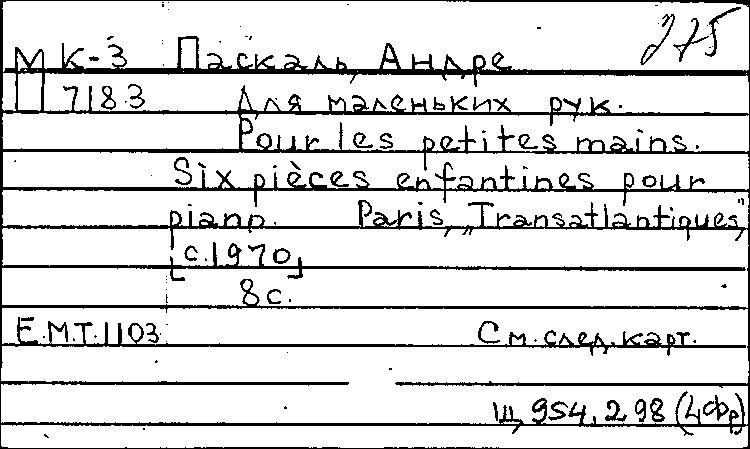 275
М К-3 Паскаль, Андре
П 7183 Для маленьких рук.
Pour les petites mains.
Six pièces enfantines pour
piano. Paris, „Transatlantiques",
[c.1970]
8 с.
E.M.T.1103 См. след. карт.
Щ 954.298 (4Фр)